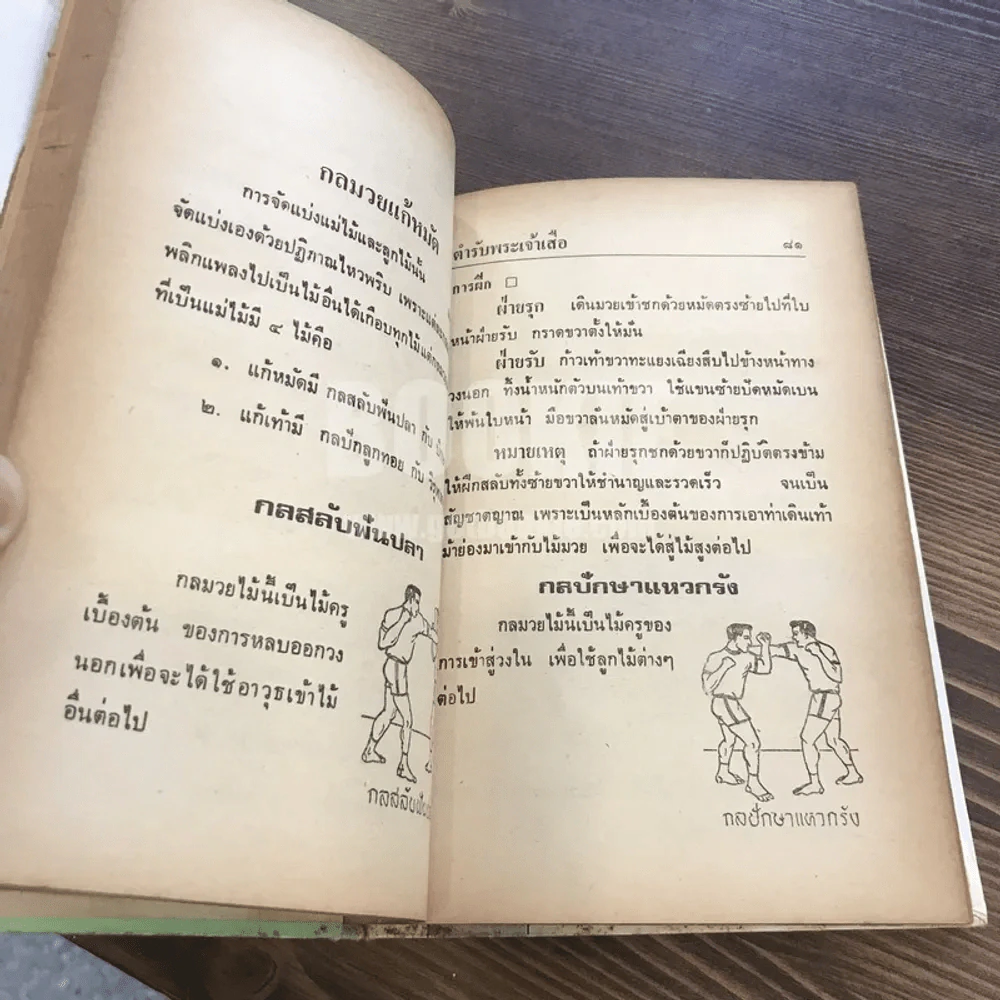 กลมวยแก้หมัด
การจัดแบ่งแม่ไม้และลูกไม้นั้น
จัดแบ่งเองด้วยปฏิภาณไหวพริบ เพราะแต่
พลิกแพลงไปเป็นไม้อื่นได้เกือบทุกไม้
ที่เป็นแม่ไม้มี ๔ ไม้คือ
๑. แก้หมัดมี กลสลับฟันปลา กับ
๒. แก้เท้ามี กลปักลูกทอย กับ
กลสลับฟันปลา
กลมวยไม้นี้เป็นไม้ครู
เบื้องต้น ของการหลบออกวง
นอกเพื่อจะได้ใช้อาวุธเข้าไม้
อื่นต่อไป
ตำรับพระเจ้าเสือ ๘๑
การฝึก
ฝ่ายรุก เดินมวยเข้าชกด้วยหมัดตรงซ้ายไปที่ใบ
หน้าฝ่ายรับ กราดขวาตั้งให้มั่น
ฝ่ายรับ ก้าวเท้าขวาทะแยงเฉียงสืบไปข้างหน้าทาง
วงนอก ทิ้งน้ำหนักตัวบนเท้าขวา ใช้แขนซ้ายปัดหมัดเบน
ให้พ้นใบหน้า มือขวาลั่นหมัดสู่เบ้าตาของฝ่ายรุก
หมายเหตุ ถ้าฝ่ายรุกชกด้วยขวาก็ปฏิบัติตรงข้าม
ให้ฝึกสลับทั้งซ้ายขวาให้ชำนาญและรวดเร็ว จนเป็น
สัญชาตญาณ เพราะเป็นหลักเบื้องต้นของการเอาท่าเดินเท้า
ม้าย่องมาเข้ากับไม้มวย เพื่อจะได้สู่ไม้สูงต่อไป
กลปักษาแหวกรัง
กลมวยไม้นี้เป็นไม้ครูของ
การเข้าสู่วงใน เพื่อใช้ลูกไม้ต่างๆ
ต่อไป
กลปักษาแหวกรัง